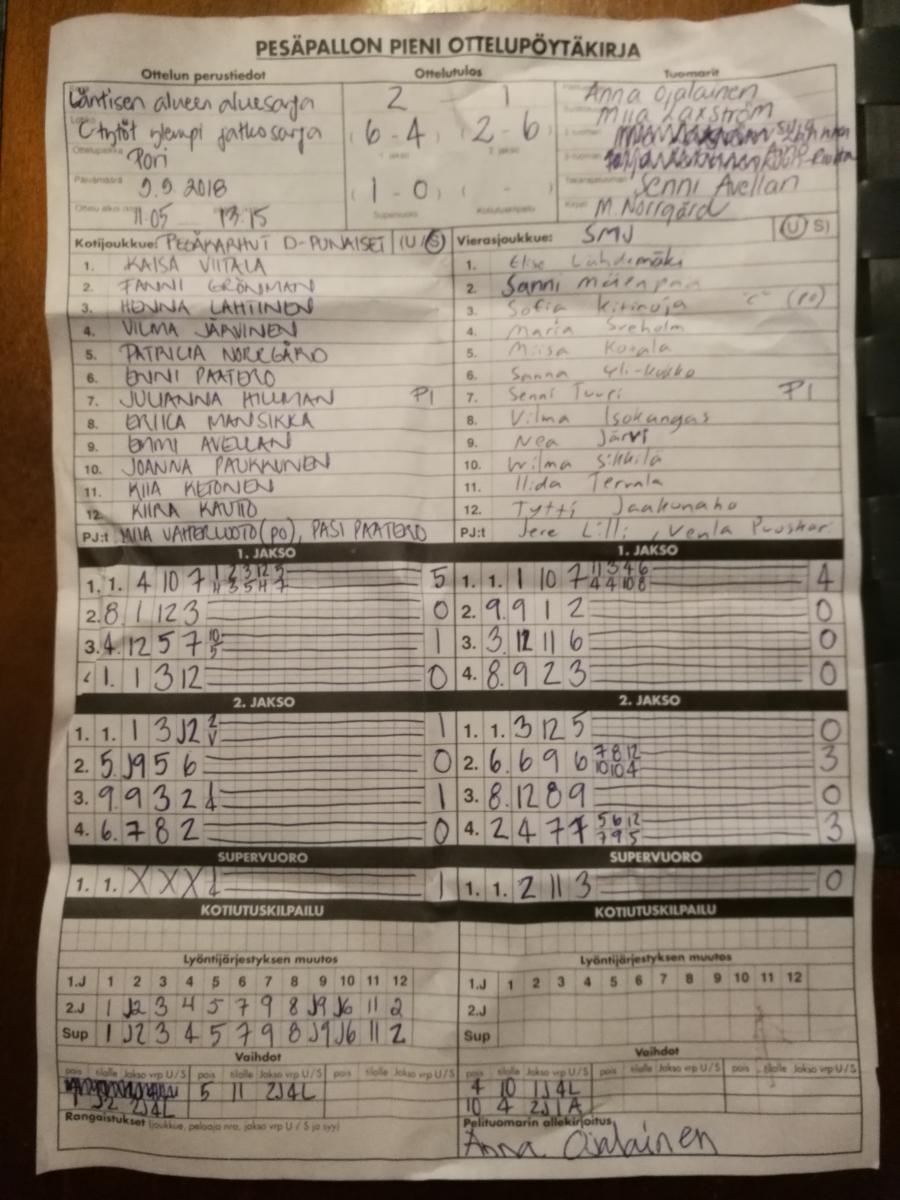 PESÄPALLON PIENI OTTELUPÖYTÄKIRJA
Ottelun perustiedot Ottelutulos Tuomarit
Läntisen alueen aluesarja 2 1 Anna Ojalainen
C-tytöt ylempi jatkosarja 6 - 4 2 - 6 Miia Laxström
Pori
9.9 2018 1 - 0 - Senni Avellan
11.05 13.15 Supervuoro M. Norrgård
Kotijoukkue: PESÄKARHUT D-PUNAISET (U/S) Vierasjoukkue: SMJ (U S)
1. KAISA VIITALA 1. Elise Lähdemäki
2. FANNI GRÖNMAN 2. Sanni Mäenpää
3. HENNA LAHTINEN 3. Sofia Kitinoja "C" (PO)
4. VILMA JÄRVINEN 4. Maria Sveholm
5. PATRICIA NORRGÅRD 5. Miisa Kotala
6. ENNI PAATERO 6. Sanna Yli-Kukko
7. JULIANNA HILLMAN P1 7. Senni Tuuri P1
8. ERIICA MANSIKKA 8. Vilma Isokangas
9. EMMI AVELLAN 9. Nea Järvi
10. JOANNA PAUKKUNEN 10. Wilma Sikkilä
11. KIIA KETONEN 11. Iida Tervala
12. KIIRA KAUTTO 12. Tytti Jaakunaho
PJ:t MIIA VAHTERLUOTO (po), PASI PAATERO PJ:t Jere Lilli, Venla Puuskari
1. JAKSO 1. JAKSO
1. 1. 4 10 7 5 1. 1. 1 10 7 11 3 4 6 4
4 4 10 8
2. 8. 1 12 3 0 2. 9. 9 1 2 0
3. 4. 12 5 7 10 1 3. 3. 12 11 6 0
5
1. 1 3 12 0 4. 8. 9 2 3 0
2. JAKSO 2. JAKSO
1. 1. 1 3 J2 2 1 1. 1. 3 12 5 0
V
2. 5. J9 5 6 0 2. 6. 6 9 6 7 8 12 3
10 10 4
3. 9. 9 3 2 1 3. 8. 12 8 9 0
4. 6. 7 8 2 0 4. 2 4 7 7 5 6 12 3
7 9 5
SUPERVUORO SUPERVUORO
1. 1. X X X 1 1. 1. 2 11 3 0
KOTIUTUSKILPAILU KOTIUTUSKILPAILU
Lyöntijärjestyksen muutos Lyöntijärjestyksen muutos
1.J 1 2 3 4 5 6 7 8 9 10 11 12 1.J 1 2 3 4 5 6 7 8 9 10 11 12
2.J 1 J2 3 4 5 7 9 8 J9 J6 11 2 2.J
Sup 1 J2 3 4 5 7 9 8 J9 J6 11 2 Sup
Vaihdot Vaihdot
pois tilalle Jakso vrp U/S pois tilalle Jakso vrp U/S pois tilalle Jakso vrp U/S pois tilalle Jakso vrp U/S pois tilalle Jakso vrp U/S pois tilalle Jakso vrp U/S
5 11 2J4L 4 10 1J4L
J2 2J4L 10 4 2J1A
Rangaistukset (joukkue, pelaaja nro, jakso vrp U / S ja syy) Pelituomarin allekirjoitus
Anna Ojalainen